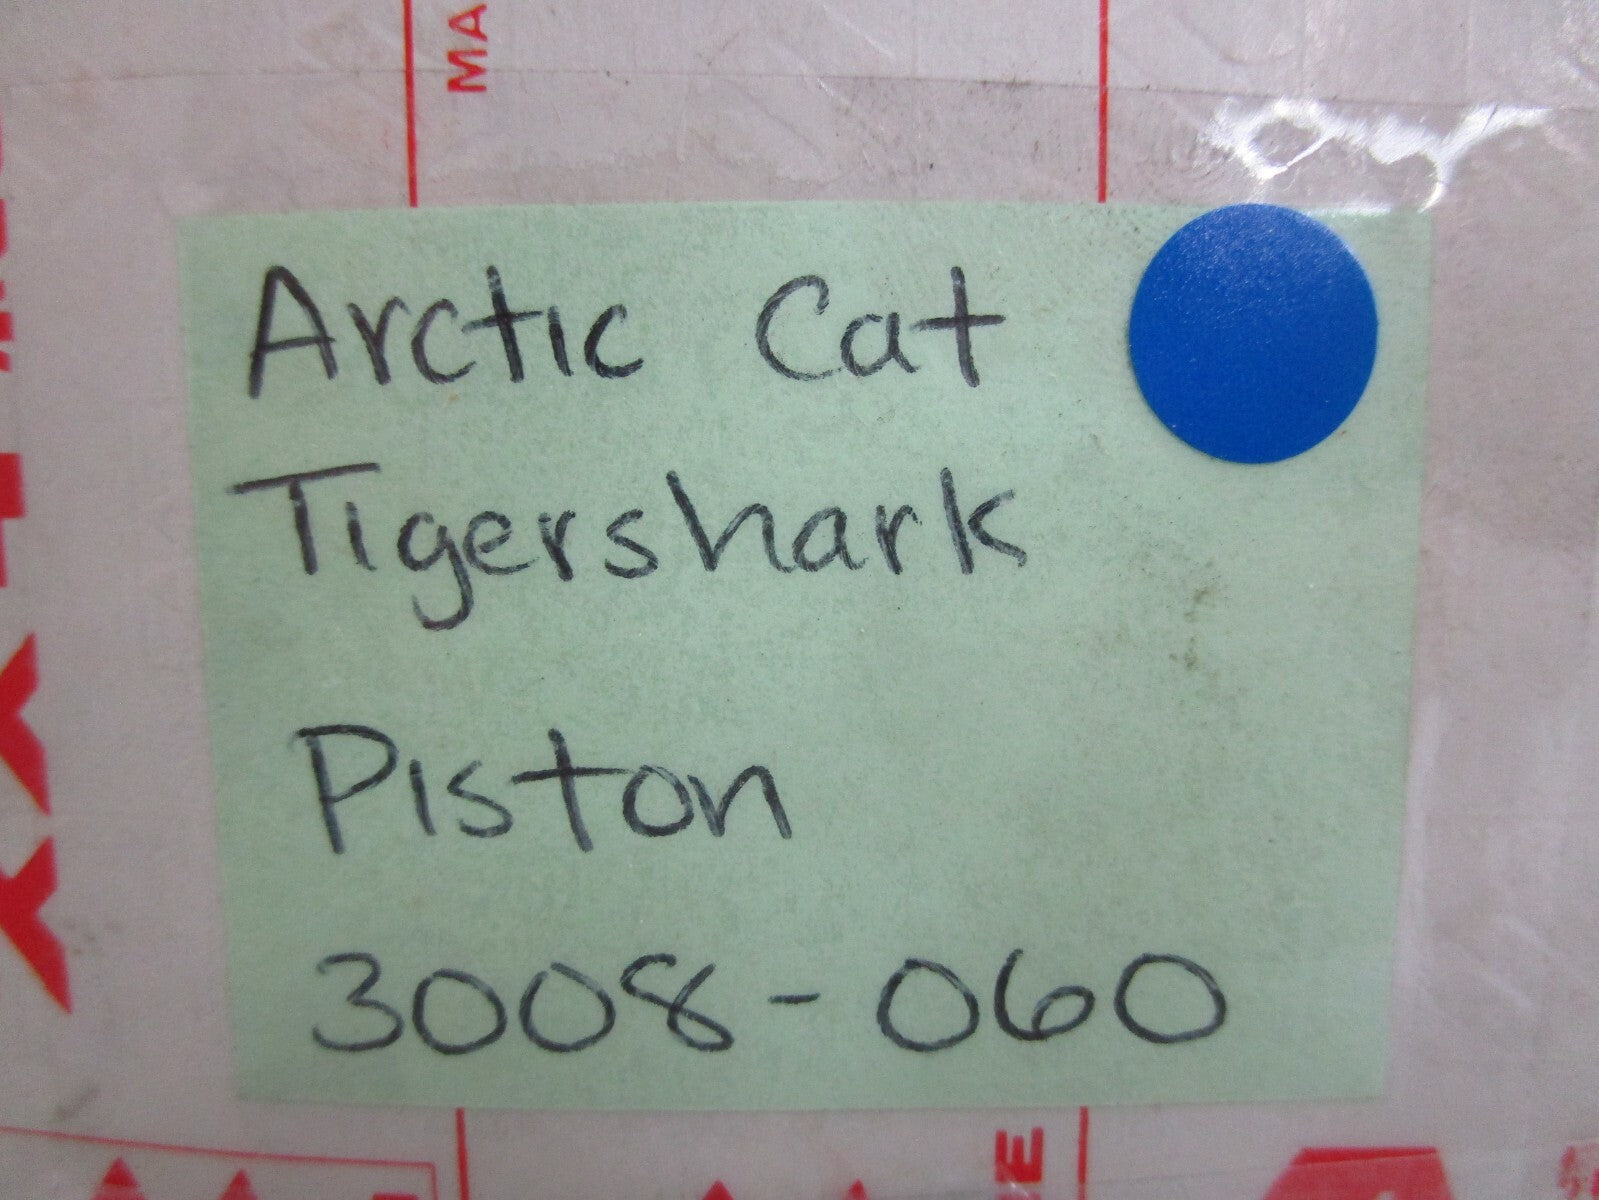 MA
Arctic Cat
Tigershark
Piston
3008-060